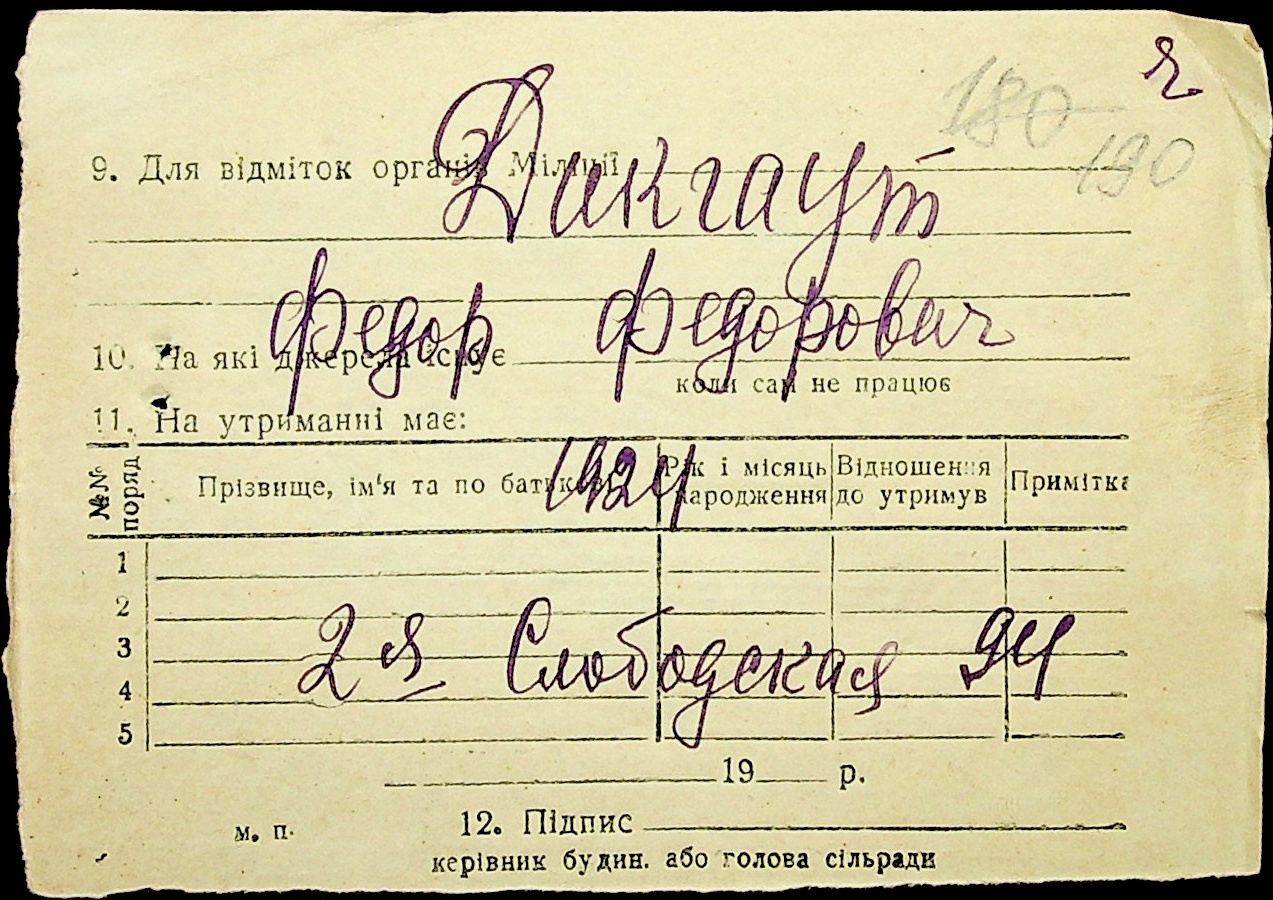 180 г
190
9. Для відміток органів Міліції
Дакгаут
Федор Федорович
10. На які джерела існує
коли сам не працює
11. На утриманні має:
1924
№№ поряд Прізвище, ім'я та по батькові Рік і місяць народження Відношення до утримув Примітка
1
2
3
4
5
2 я Слободская 94
19 р.
м. п. 12. Підпис
керівник будин. або голова сільради